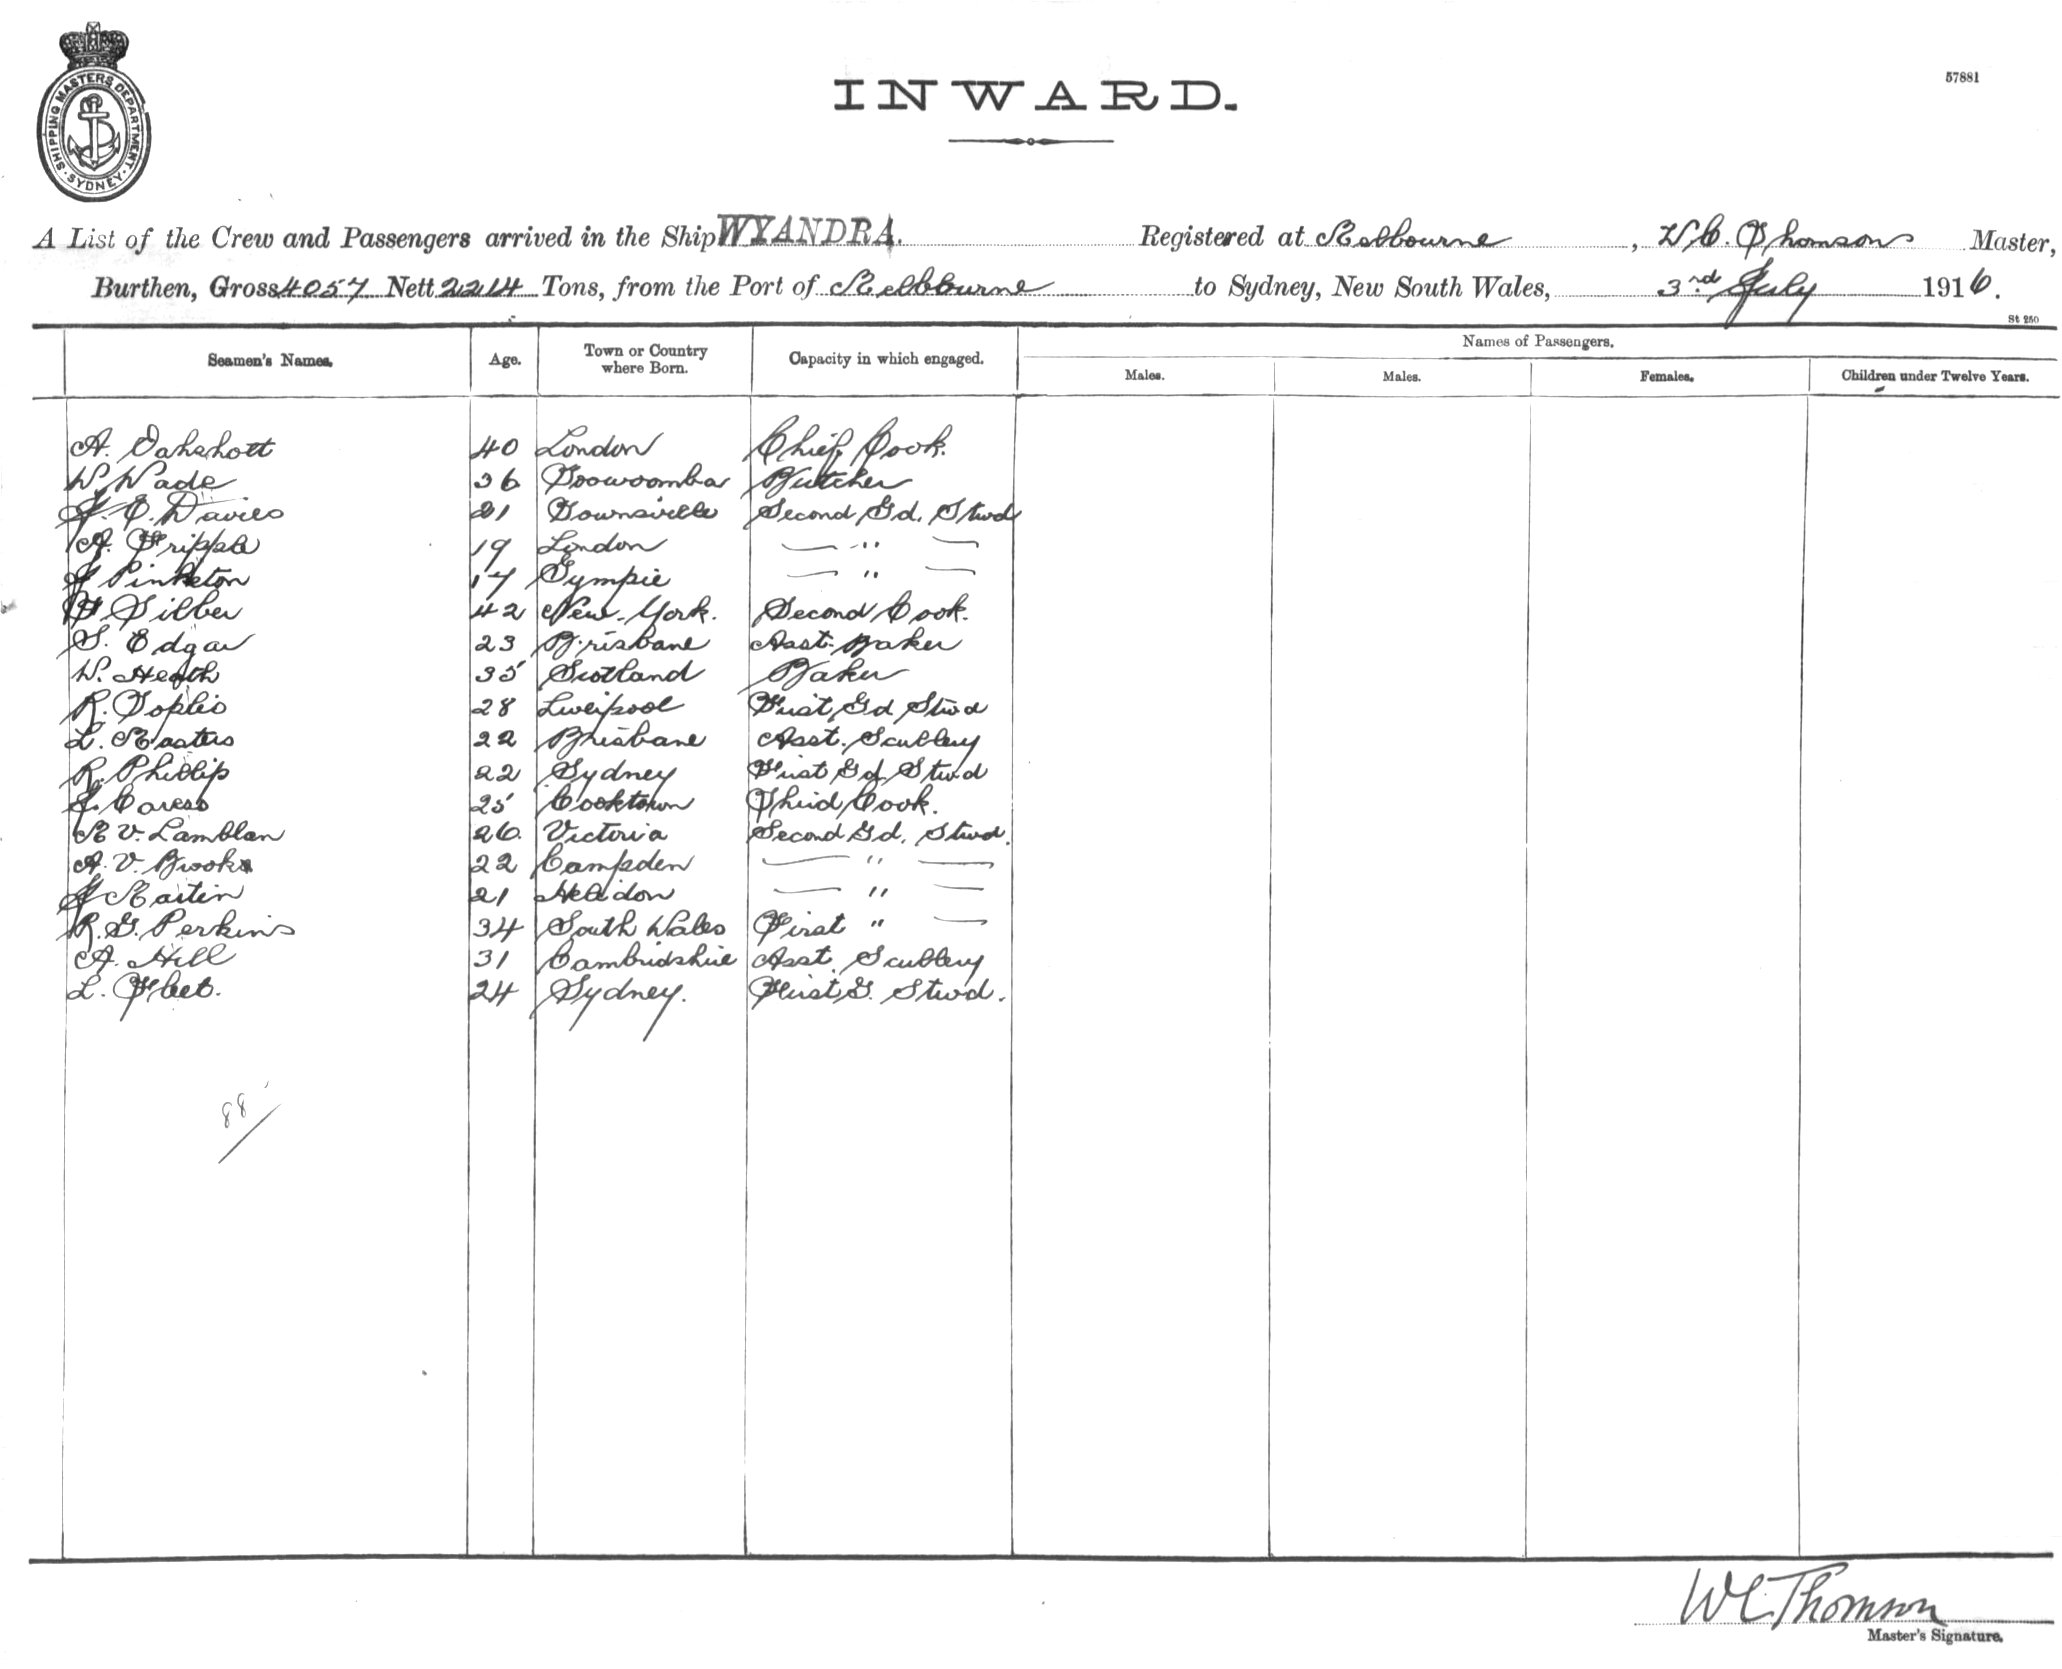 SHIPPING MASTERS DEPARTMENT. SYDNEY
INWARD.
57881
A List of the Crew and Passengers arrived in the Ship WYANDRA. Registered at Melbourne, W. C. Thomson Master,
Burthen, Gross 4057 Nett 2214 Tons, from the Port of Melbourne to Sydney, New South Wales, 3rd July 1916.
St 250
Seamen's Names. Age. Town or Country where Born. Capacity in which engaged. Names of Passengers.
Males. Males. Females. Children under Twelve Years.
A. Oakshott 40 London Chief Cook.
W. Wade 36 Toowoomba Butcher
J. E. Davies 21 Townsville Second Gd. Stwd
A. Fripple 19 London — " —
J Pinketon 17 Gympie — " —
F Silber 42 New-York. Second Cook.
S. Edgar 23 Brisbane Asst. Baker
W. Heath 35 Scotland Baker
R. Toplis 28 Liverpool First Gd Stwd
L. Masters 22 Brisbane Asst. Scullery
R. Phillip 22 Sydney First Gd Stwd
J. Caress 25 Cooktown Third Cook.
M V. Lamblan 26. Victoria Second Gd. Stwd.
A. V. Brooks 22 Campden — " —
J Martin 21 Helidon — " —
R. G. Perkins 34 South Wales First " —
A. Hill 31 Cambridshire Asst. Scullery
L. Fleet. 24 Sydney. First G. Stwd.
88
WC Thomson
Master's Signature.